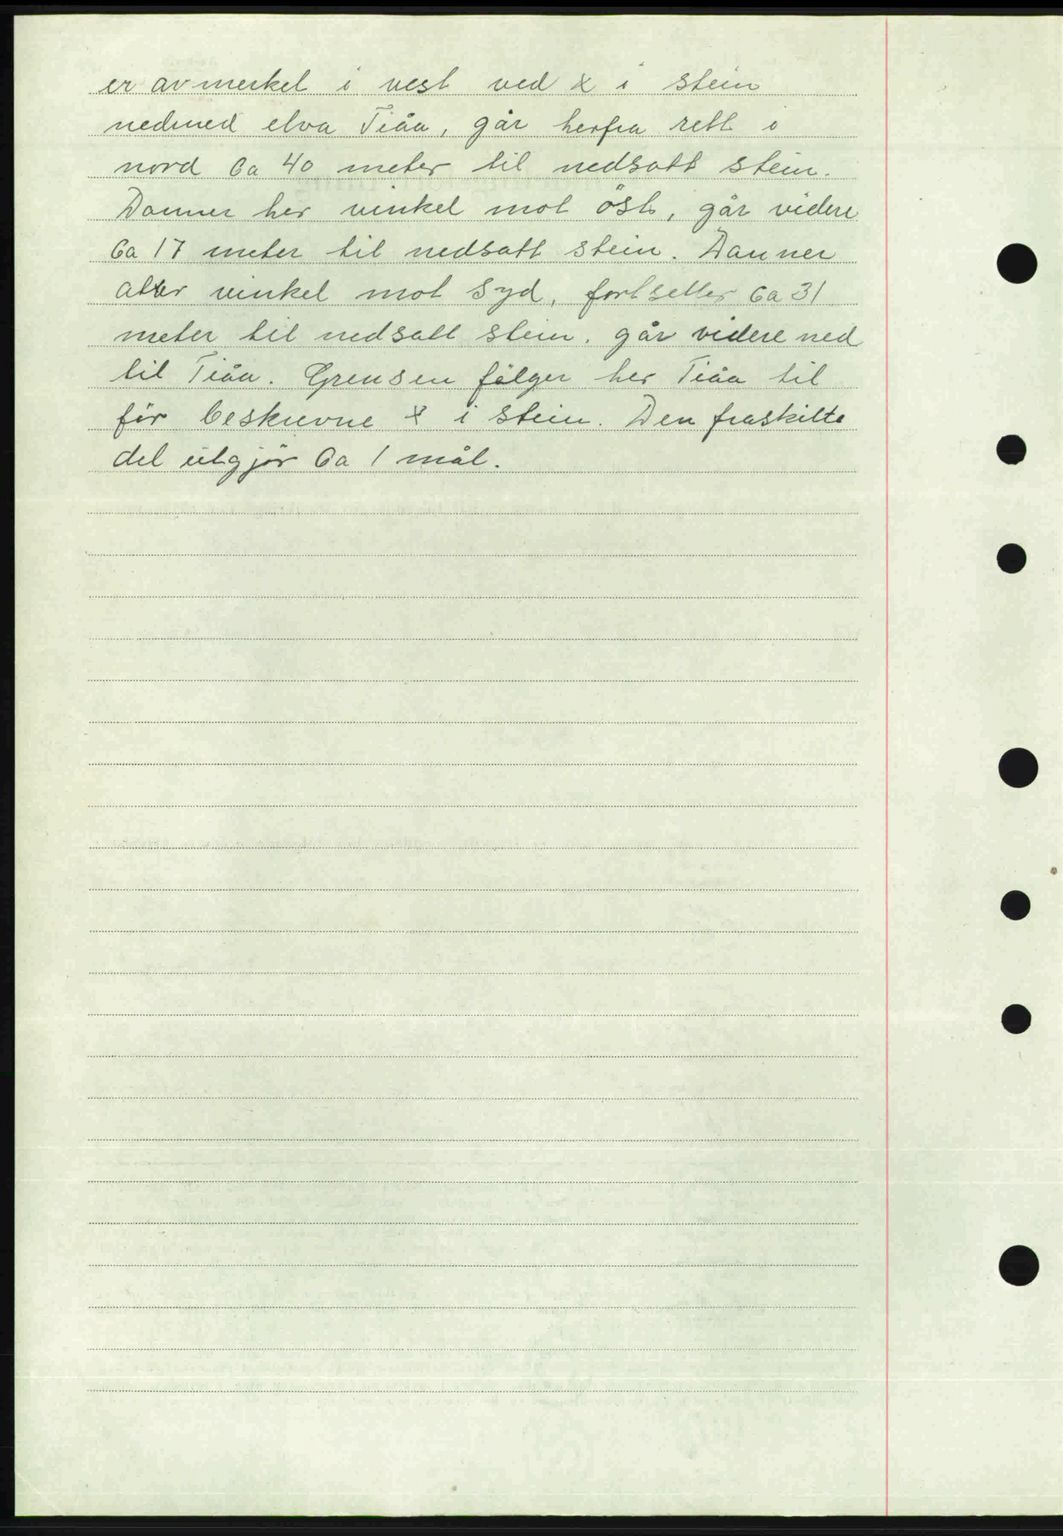 er avmerket i vest ved x i stein
nedmed elva Tiåa, går herfra rett i
nord Ca 40 meter til nedsatt stein.
Danner her vinkel mot öst, går videre
Ca 17 meter til nedsatt stein. Danner
atter vinkel mot Syd, fortsetter Ca 31
meter til nedsatt stein. går videre ned
til Tiåa. Grensen fölger her Tiåa til
för beskrevne x i stein. Den fraskilte
del utgjör Ca 1 mål.